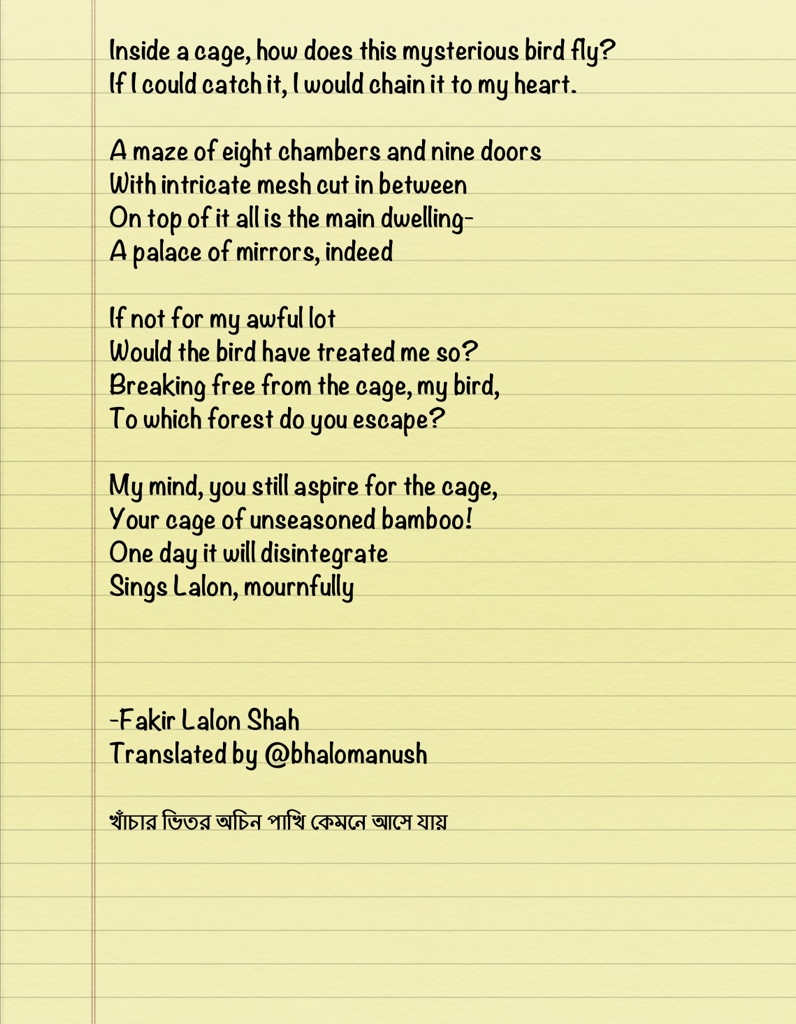 Inside a cage, how does this mysterious bird fly?
If I could catch it, I would chain it to my heart.
A maze of eight chambers and nine doors
With intricate mesh cut in between
On top of it all is the main dwelling-
A palace of mirrors, indeed
If not for my awful lot
Would the bird have treated me so?
Breaking free from the cage, my bird,
To which forest do you escape?
My mind, you still aspire for the cage,
Your cage of unseasoned bamboo!
One day it will disintegrate
Sings Lalon, mournfully
-Fakir Lalon Shah
Translated by @bhalomanush
খাঁচার ভিতর অচিন পাখি কেমনে আসে যায়